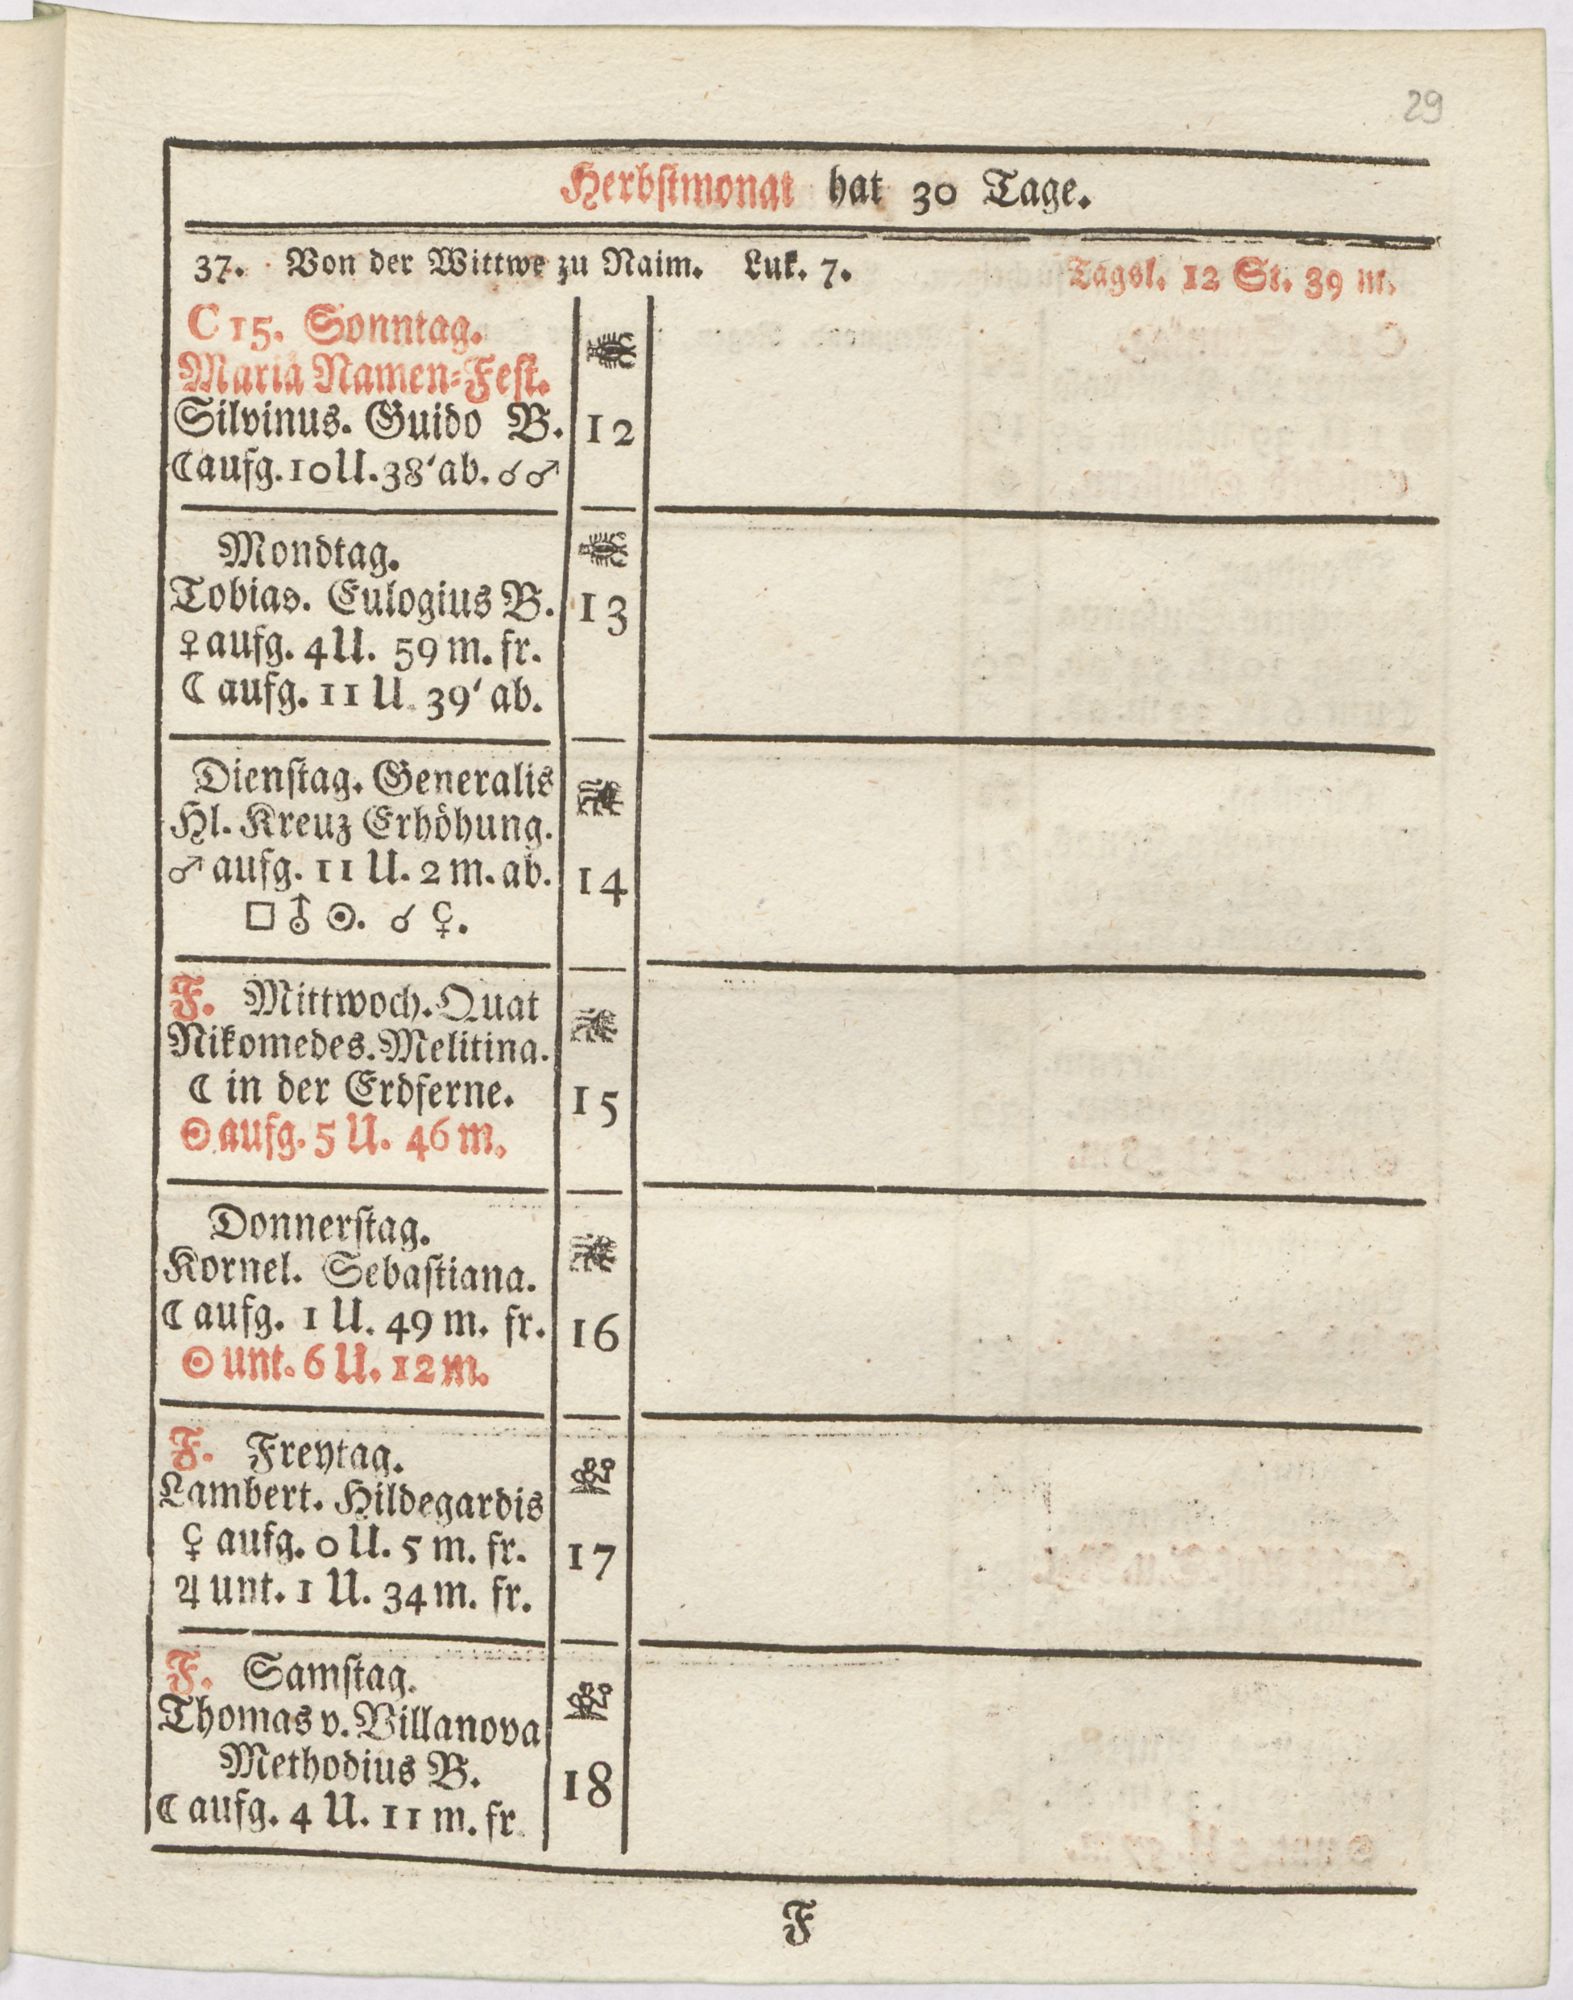 29
Herbstmonat hat 30 Tage.
37. Von der Wittwe zu Naim. Luk. 7. Tagsl. 12 St. 39 m.
C 15. Sonntag.
Mariä Namen-Fest.
Silvinus. Guido B. 12
☾aufg. 10 U. 38' ab. ☌♂
Mondtag.
Tobias. Eulogius B. 13
♀ aufg. 4 U. 59 m. fr.
☾ aufg. 11 U. 39' ab.
Dienstag. Generalis
Hl. Kreuz Erhöhung.
♂ aufg. 11 U. 2 m. ab. 14
□ ⛢ ☉. ☌ ☿.
F. Mittwoch. Quat
Nikomedes. Melitina.
☾ in der Erdferne. 15
☉ aufg. 5 U. 46 m.
Donnerstag.
Kornel. Sebastiana.
☾ aufg. 1 U. 49 m. fr. 16
☉ unt. 6 U. 12 m.
F. Freytag.
Lambert. Hildegardis
☿ aufg. 0 U. 5 m. fr. 17
♃ unt. 1 U. 34 m. fr.
F. Samstag.
Thomas v. Villanova
Methodius B. 18
☾ aufg. 4 U. 11 m. fr
F